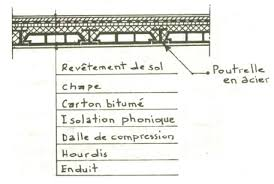 Revêtement de sol
chape
Carton bitumé
Isolation phonique
Dalle de compression
Hourdis
Enduit
Poutrelle
en acier